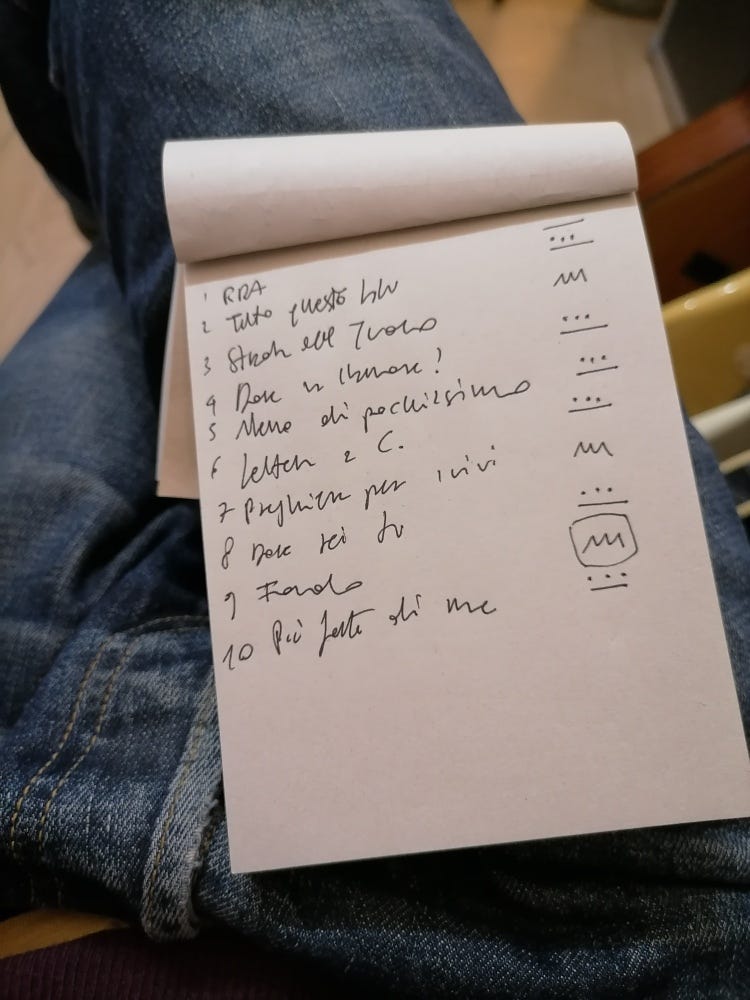 1 RRA
2 Tutto questo blu
3 Strade del
4 Dove
5 Meno di pochissimo
6 Lettera a C.
7 Preghiera per i vivi
8 Dove sei tu
9 Fondo
10 Più forte di me